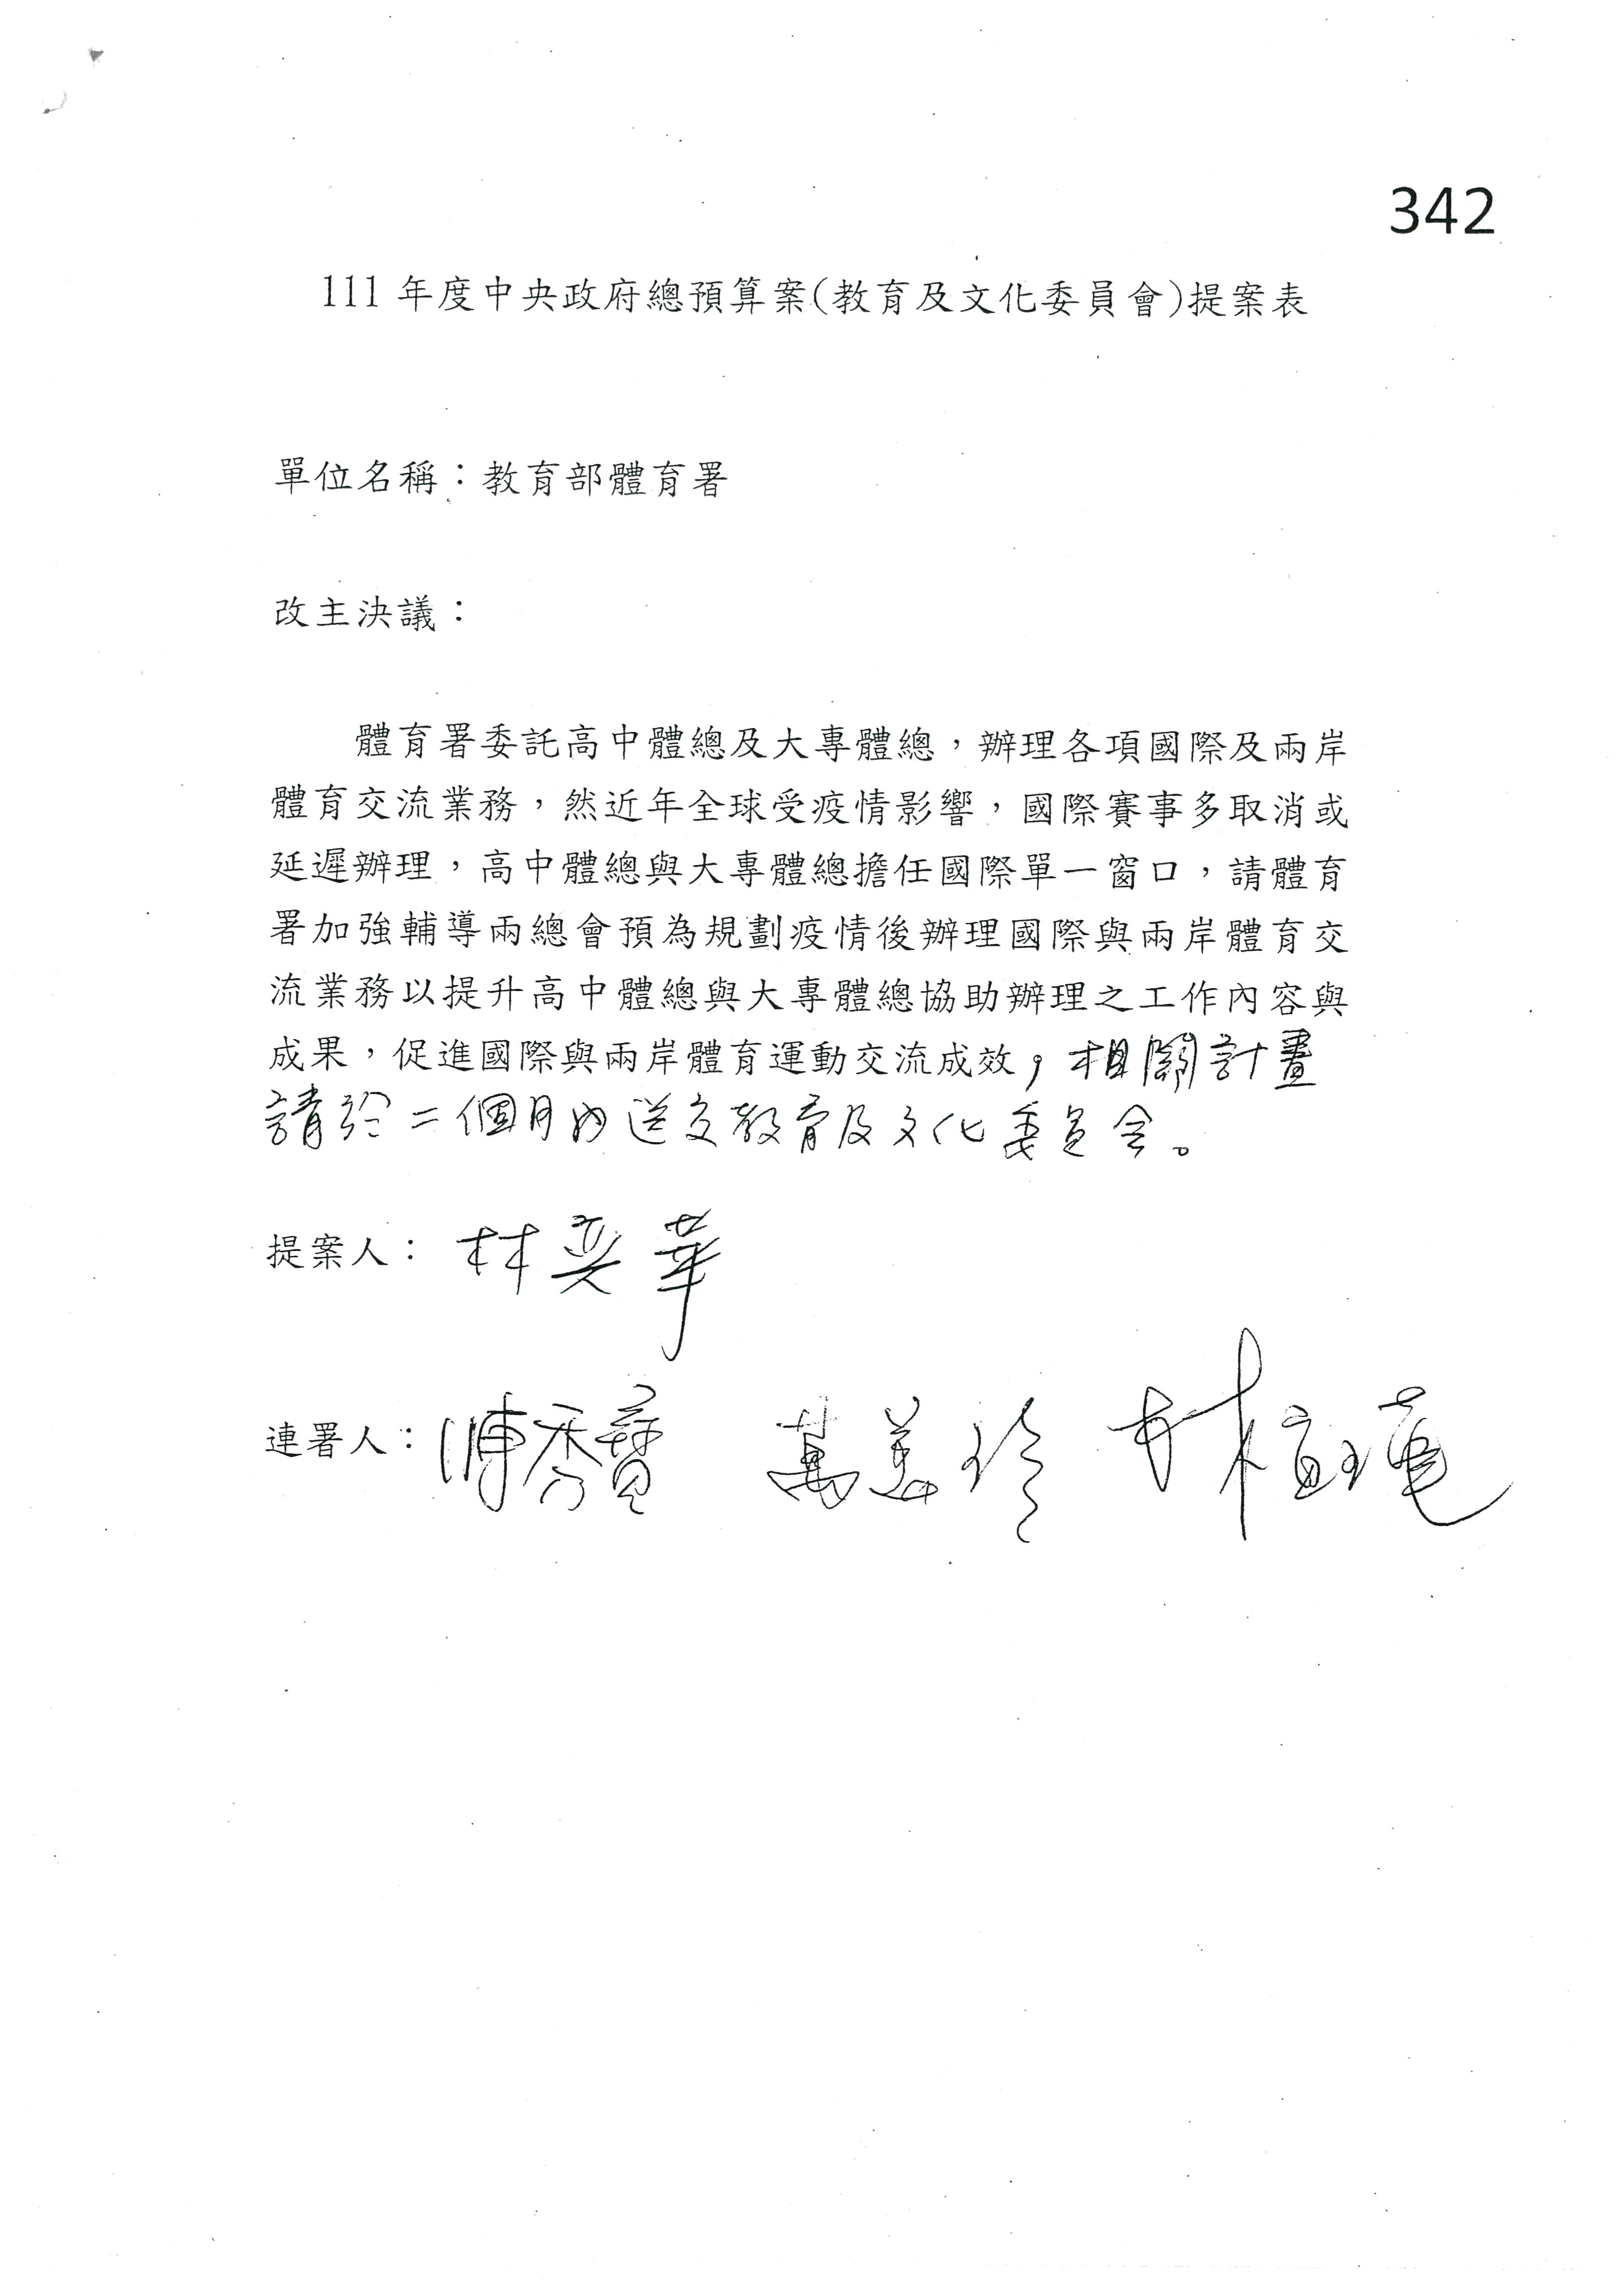 342
111 年度中央政府總預算案(教育及文化委員會)提案表
單位名稱：教育部體育署
改主決議：
體育署委託高中體總及大專體總，辦理各項國際及兩岸
體育交流業務，然近年全球受疫情影響，國際賽事多取消或
延遲辦理，高中體總與大專體總擔任國際單一窗口，請體育
署加強輔導兩總會預為規劃疫情後辦理國際與兩岸體育交
流業務以提升高中體總與大專體總協助辦理之工作內容與
成果，促進國際與兩岸體育運動交流成效，相關計畫
請於二個月內送交教育及文化委員会。
提案人：林奕華
連署人：陳秀寳 萬美玲 林宜瑾